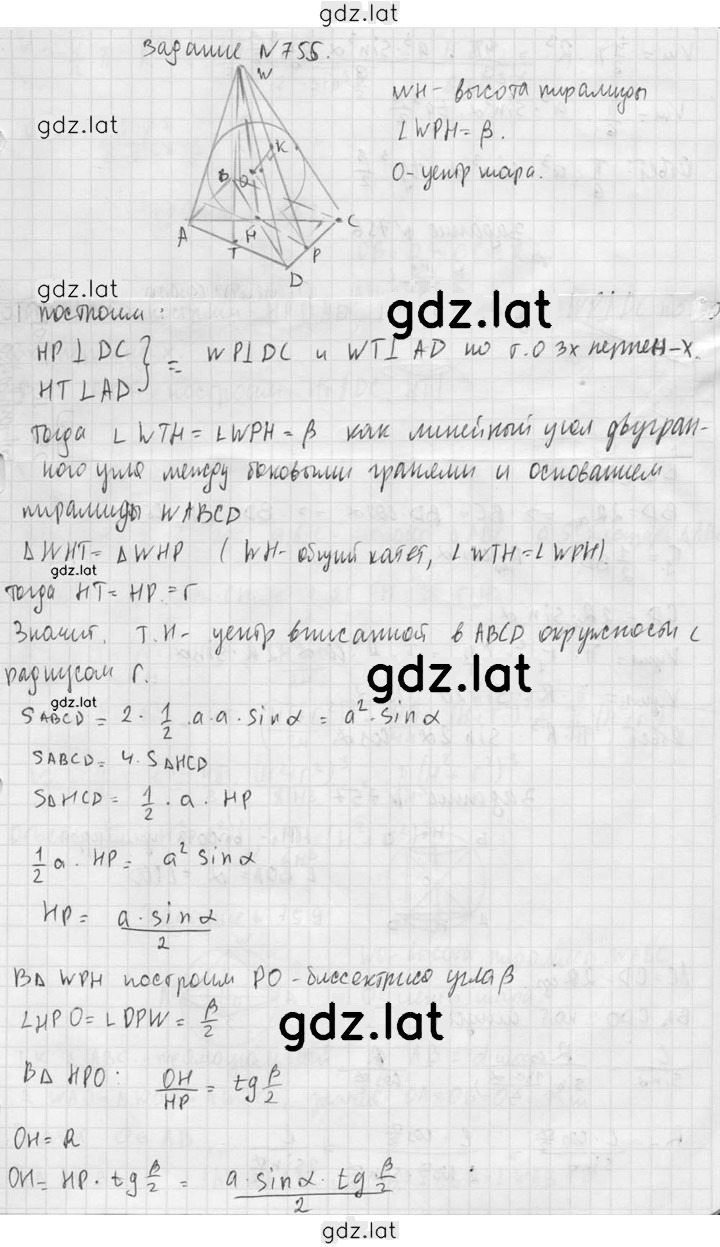 gdz.lat
Задание №755.
gdz.lat
W
WH- высота пирамиды
∠WPH=β.
O-центр шара.
K
B
O
A
H
C
T
P
D
gdz.lat
построим:
gdz.lat
HP⊥DC
HT⊥AD
} = WP⊥DC и WT⊥AD по т.О 3х перпен-х.
Тогда ∠WTH=∠WPH=β как линейный угол двугран-
ного угла между боковыми гранями и основанием
пирамиды WABCD
ΔWHT=ΔWHP (WH-общий катет, ∠WTH=∠WPH)
gdz.lat
тогда HT=HP=r
Значит, т.H- центр вписанной в ABCD окружности с
радиусом r.
gdz.lat
gdz.lat
SABCD = 2·1/2·a·a·sinα = a²·sinα
SABCD=4·SΔHCD
SΔHCD=1/2·a·HP
1/2a·HP= a² sinα
HP= a·sinα/2
ВΔ WPH построим PO-биссектриса углаβ
∠HPO=∠DPW=β/2
gdz.lat
ВΔ HPO: OH/HP=tgβ/2
OH=R
OH=HP·tgβ/2= a·sinα·tgβ/2/2
gdz.lat